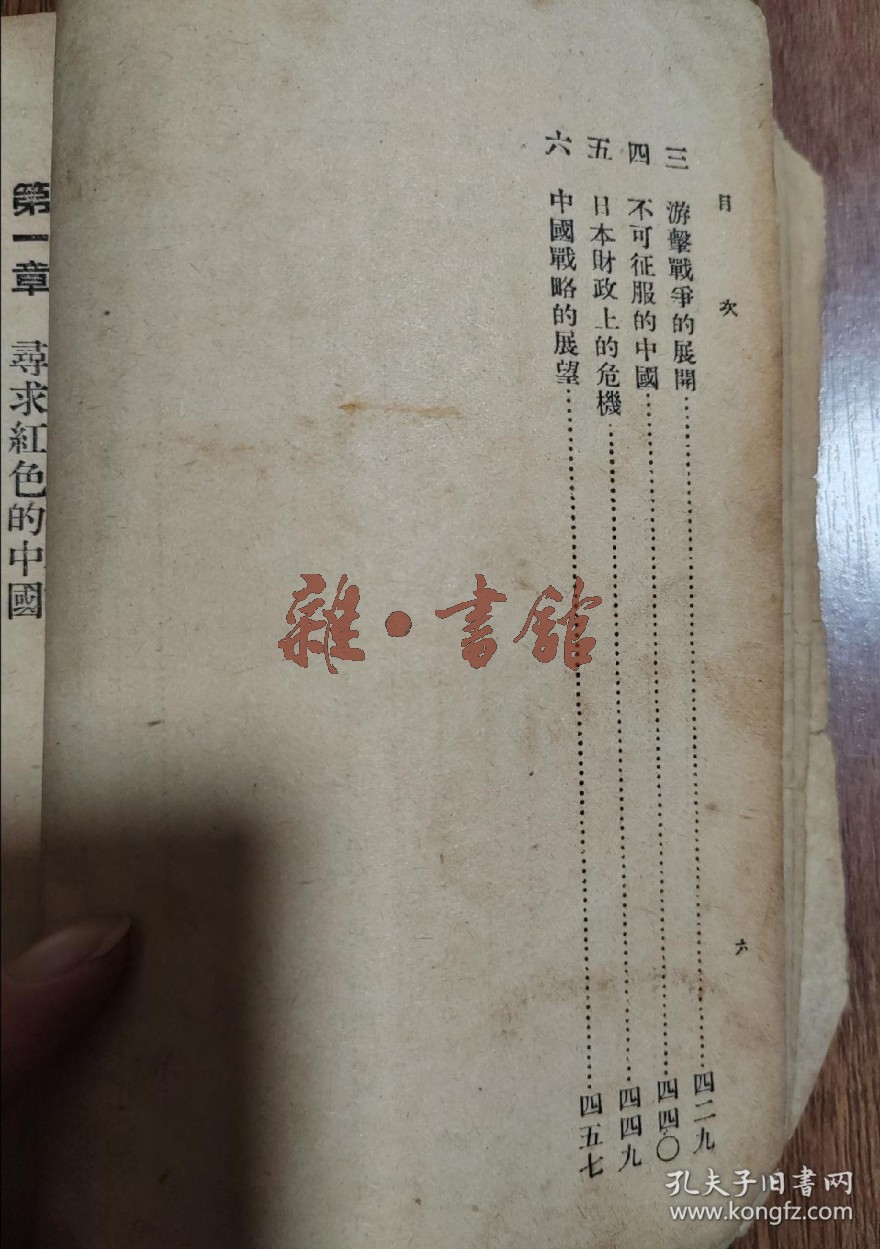 目次
六
三 游擊戰爭的展開……四二九
四 不可征服的中國……四四〇
五 日本財政上的危機……四四九
六 中國戰略的展望……四五七
第一章 尋求紅色的中國
雜·書館
孔夫子旧书网
www.kongfz.com